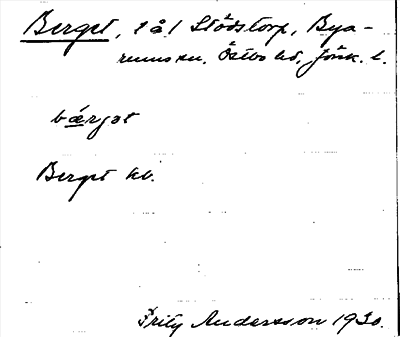 Berget, t å 1 Stödstorp, Bya-
rums sn. Östbo hd, Jönk. l.
bærjət
Berget kb.
Fritz Andersson 1930.